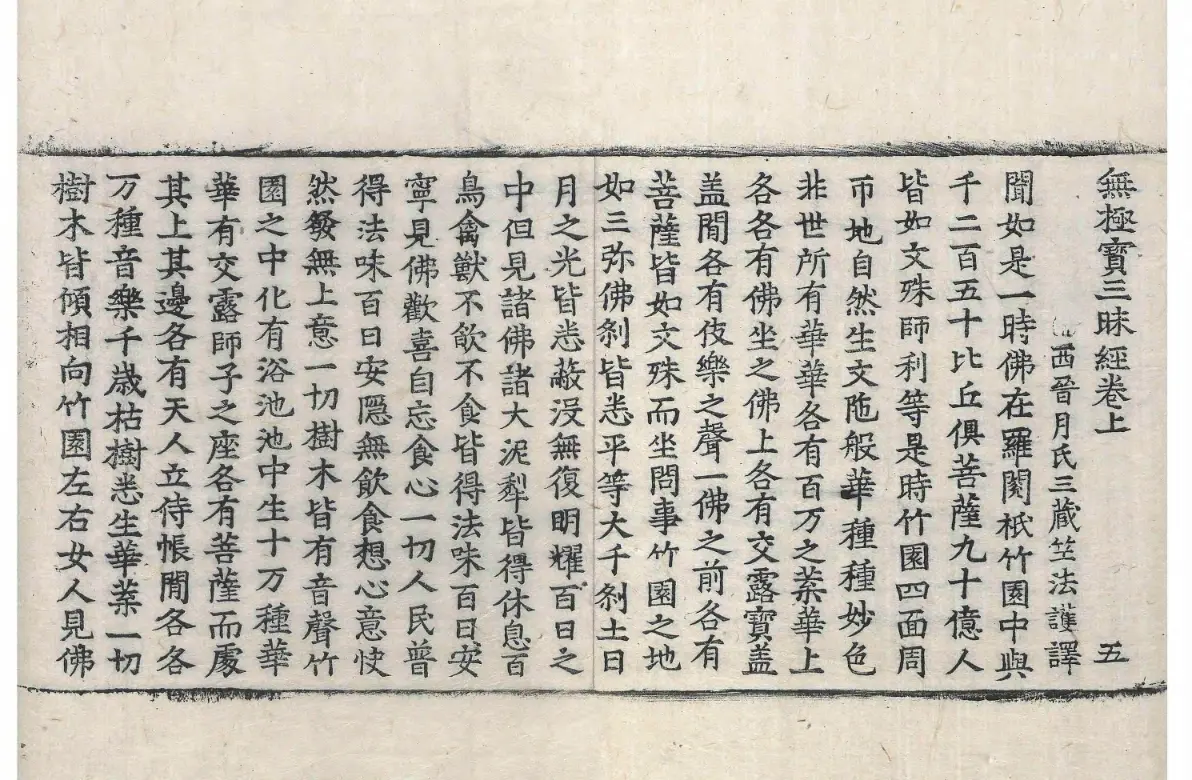 無極寳三昧經卷上 五
西晉月氏三藏竺法護譯
聞如是一時佛在羅閱祇竹園中與
千二百五十比丘俱菩薩九十億人
皆如文殊師利等是時竹園四面周
帀地自然生文陁般華種種妙色
非世所有華華各有百万之葉華上
各各有佛坐之佛上各有交露寳盖
盖閒各有伎樂之聲一佛之前各有
菩薩皆如文殊而坐問事竹園之地
如三弥佛刹皆悉平等大千刹土日
月之光皆悉蔽没無復明耀百日之
中但見諸佛諸大泥犁皆得休息百
鳥禽獸不飲不食皆得法味百日安
寧見佛歡喜自忘食心一切人民普
得法味百日安隱無飲食想心意快
然發無上意一切樹木皆有音聲竹
園之中化有浴池池中生十万種華
華有交露師子之座各有菩薩而處
其上其邊各有天人立侍帳閒各各
万種音樂千歳枯樹悉生華葉一切
樹木皆傾相向竹園左右女人見佛